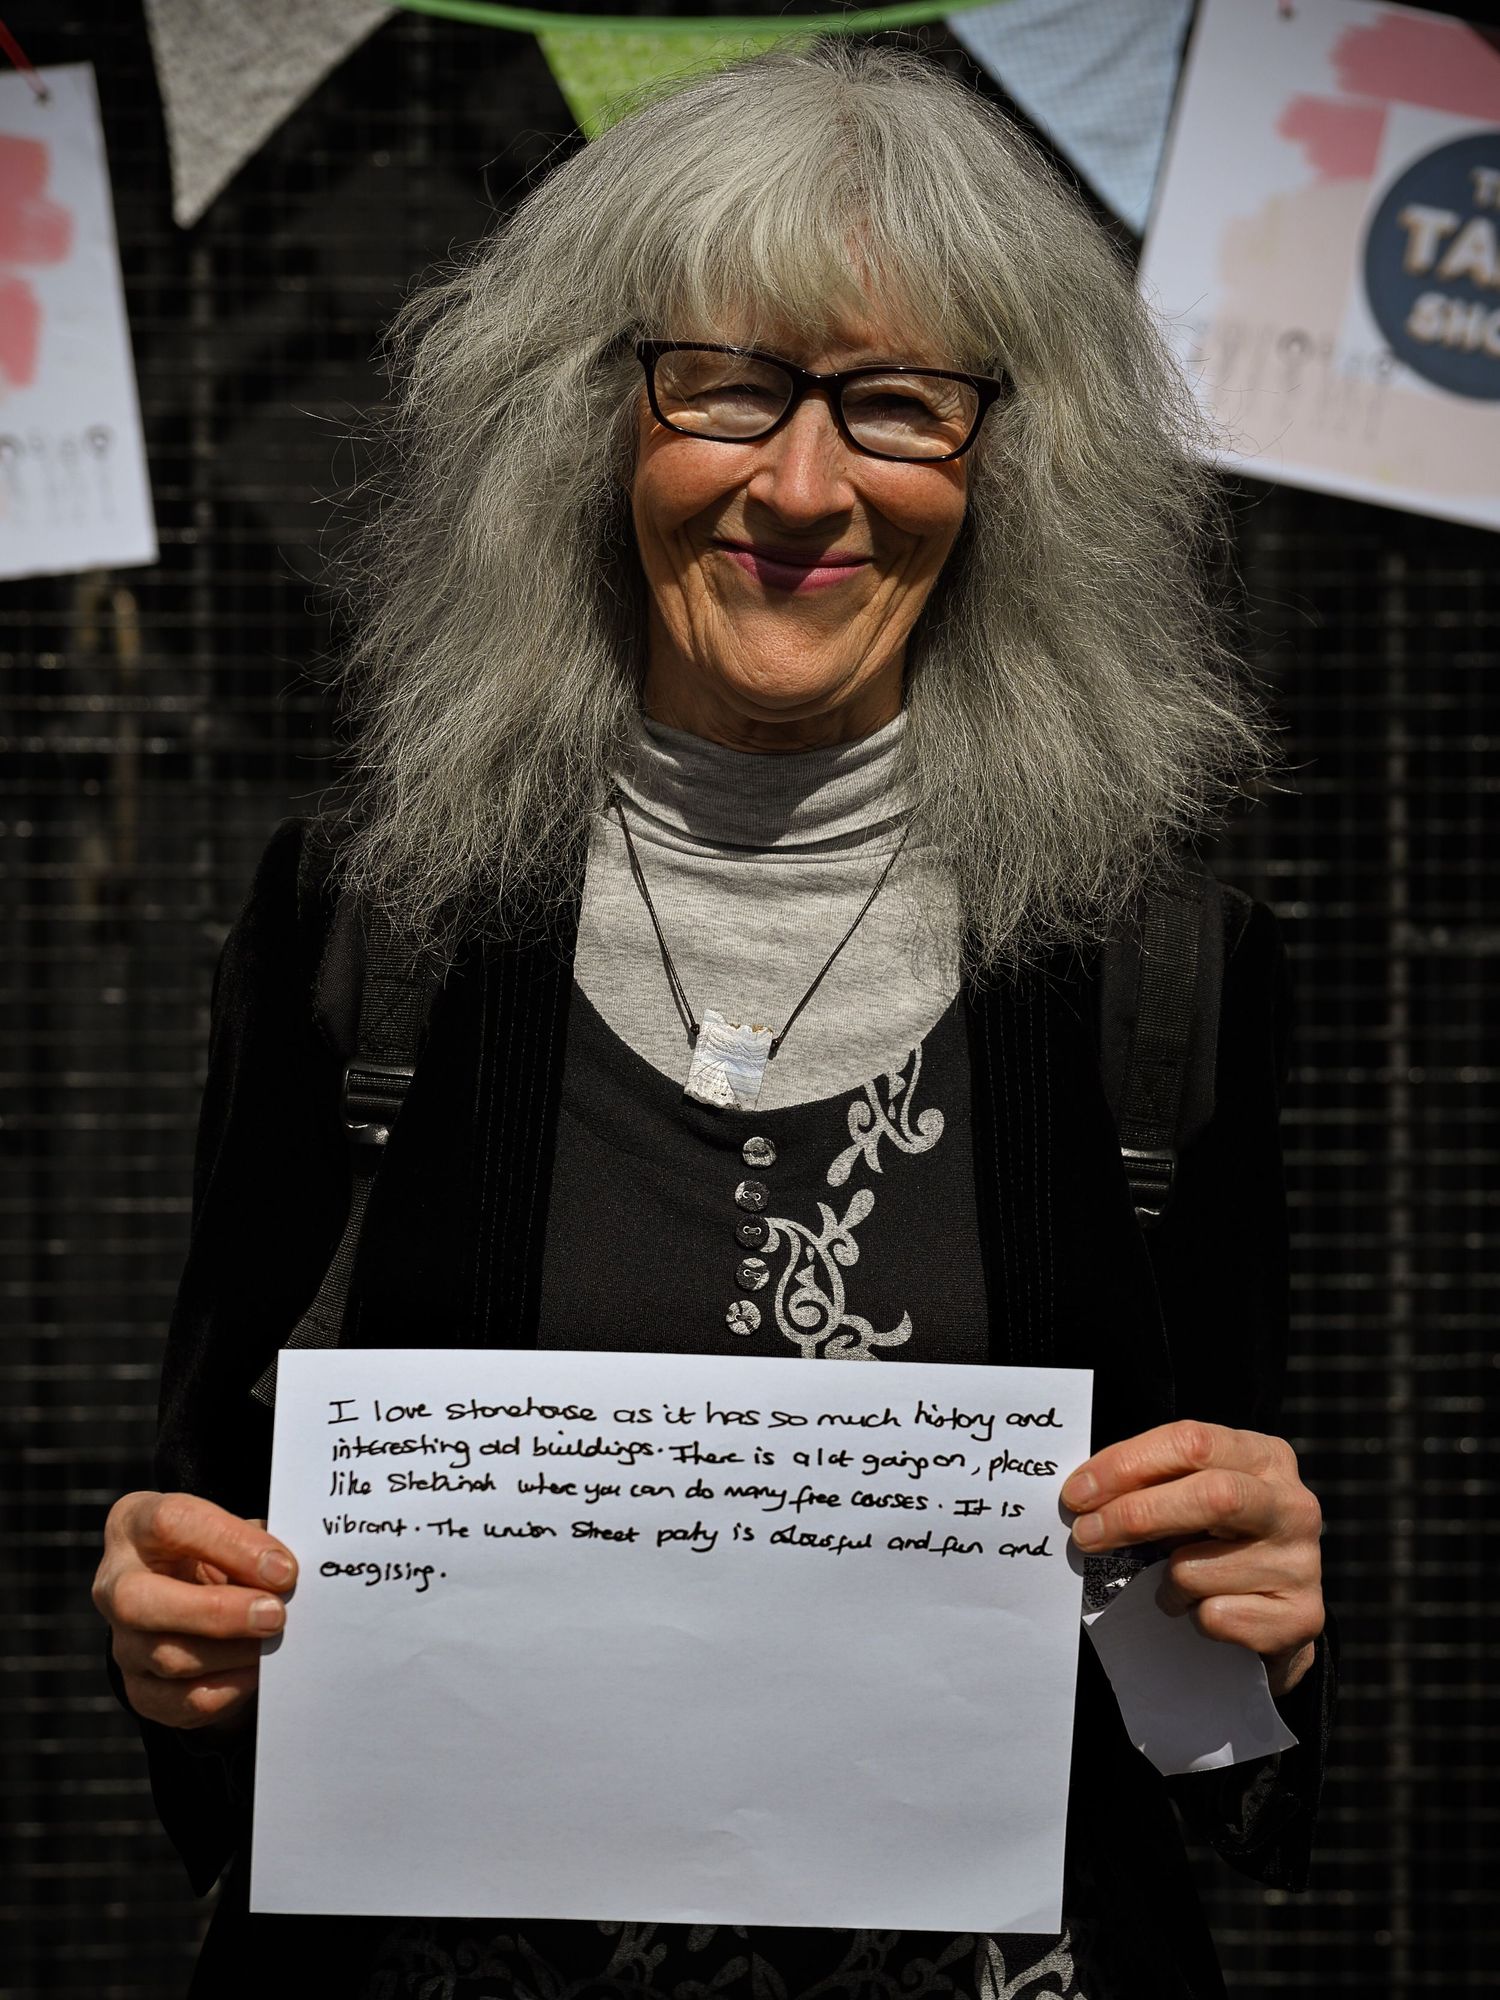 TA
SHO
I love stonehouse as it has so much history and
interesting old buildings. There is a lot going on, places
like Shekinah where you can do many free courses. It is
vibrant. The union Street party is colourful and fun and
energising.